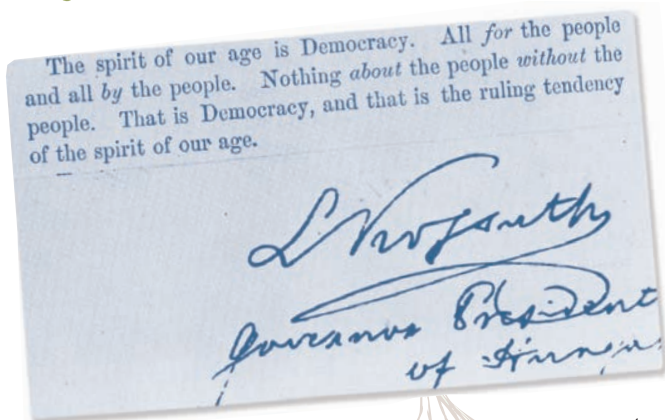 The spirit of our age is Democracy. All for the people
and all by the people. Nothing about the people without the
people. That is Democracy, and that is the ruling tendency
of the spirit of our age.
L Kossuth
President
of